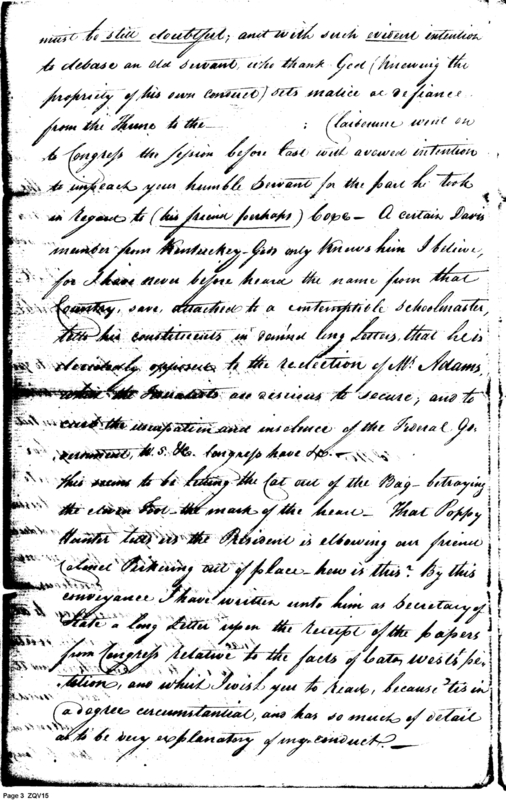 must be still doubtful; and with such evident intention
to debase an old servant, who thank God (knowing the
propriety of his own conduct) sets malice at defiance
from the Throne to the ; Claiborne went on
to Congress the session before last with avowed intention
to impeach your humble Servant for the part he took
in regard to (his friend perhaps) Coxe — A certain Davis
member from Kentuckey - God only knows him I believe,
for I have never before heard the name from that
Country, save, attached to a contemptible Schoolmaster,
tells his constituents in damn'd long Letters, that he is
decidedly opposed to the reelection of Mr Adams,
whom the are desirous to secure; and to
the usurpation and insolence of the Federal Go-
vernment, H. S. H. Congress have &c. —
this seems to be letting the Cat out of the Bag - betraying
the cloven Foot - the mark of the beast - That Poppy
Hunter tells us the President is elbowing our friend
Colonel Pickering out of place - how is this? By this
conveyance I have written unto him as Secretary of
State a long Letter upon the receipt of the papers
from Congress relative to the facts of Cato West's pe-
tition, and which I wish you to read, because 'tis in
a degree circumstantial, and has so much of detail
as to be very explanatory of my conduct. —
Page 3 ZQV15